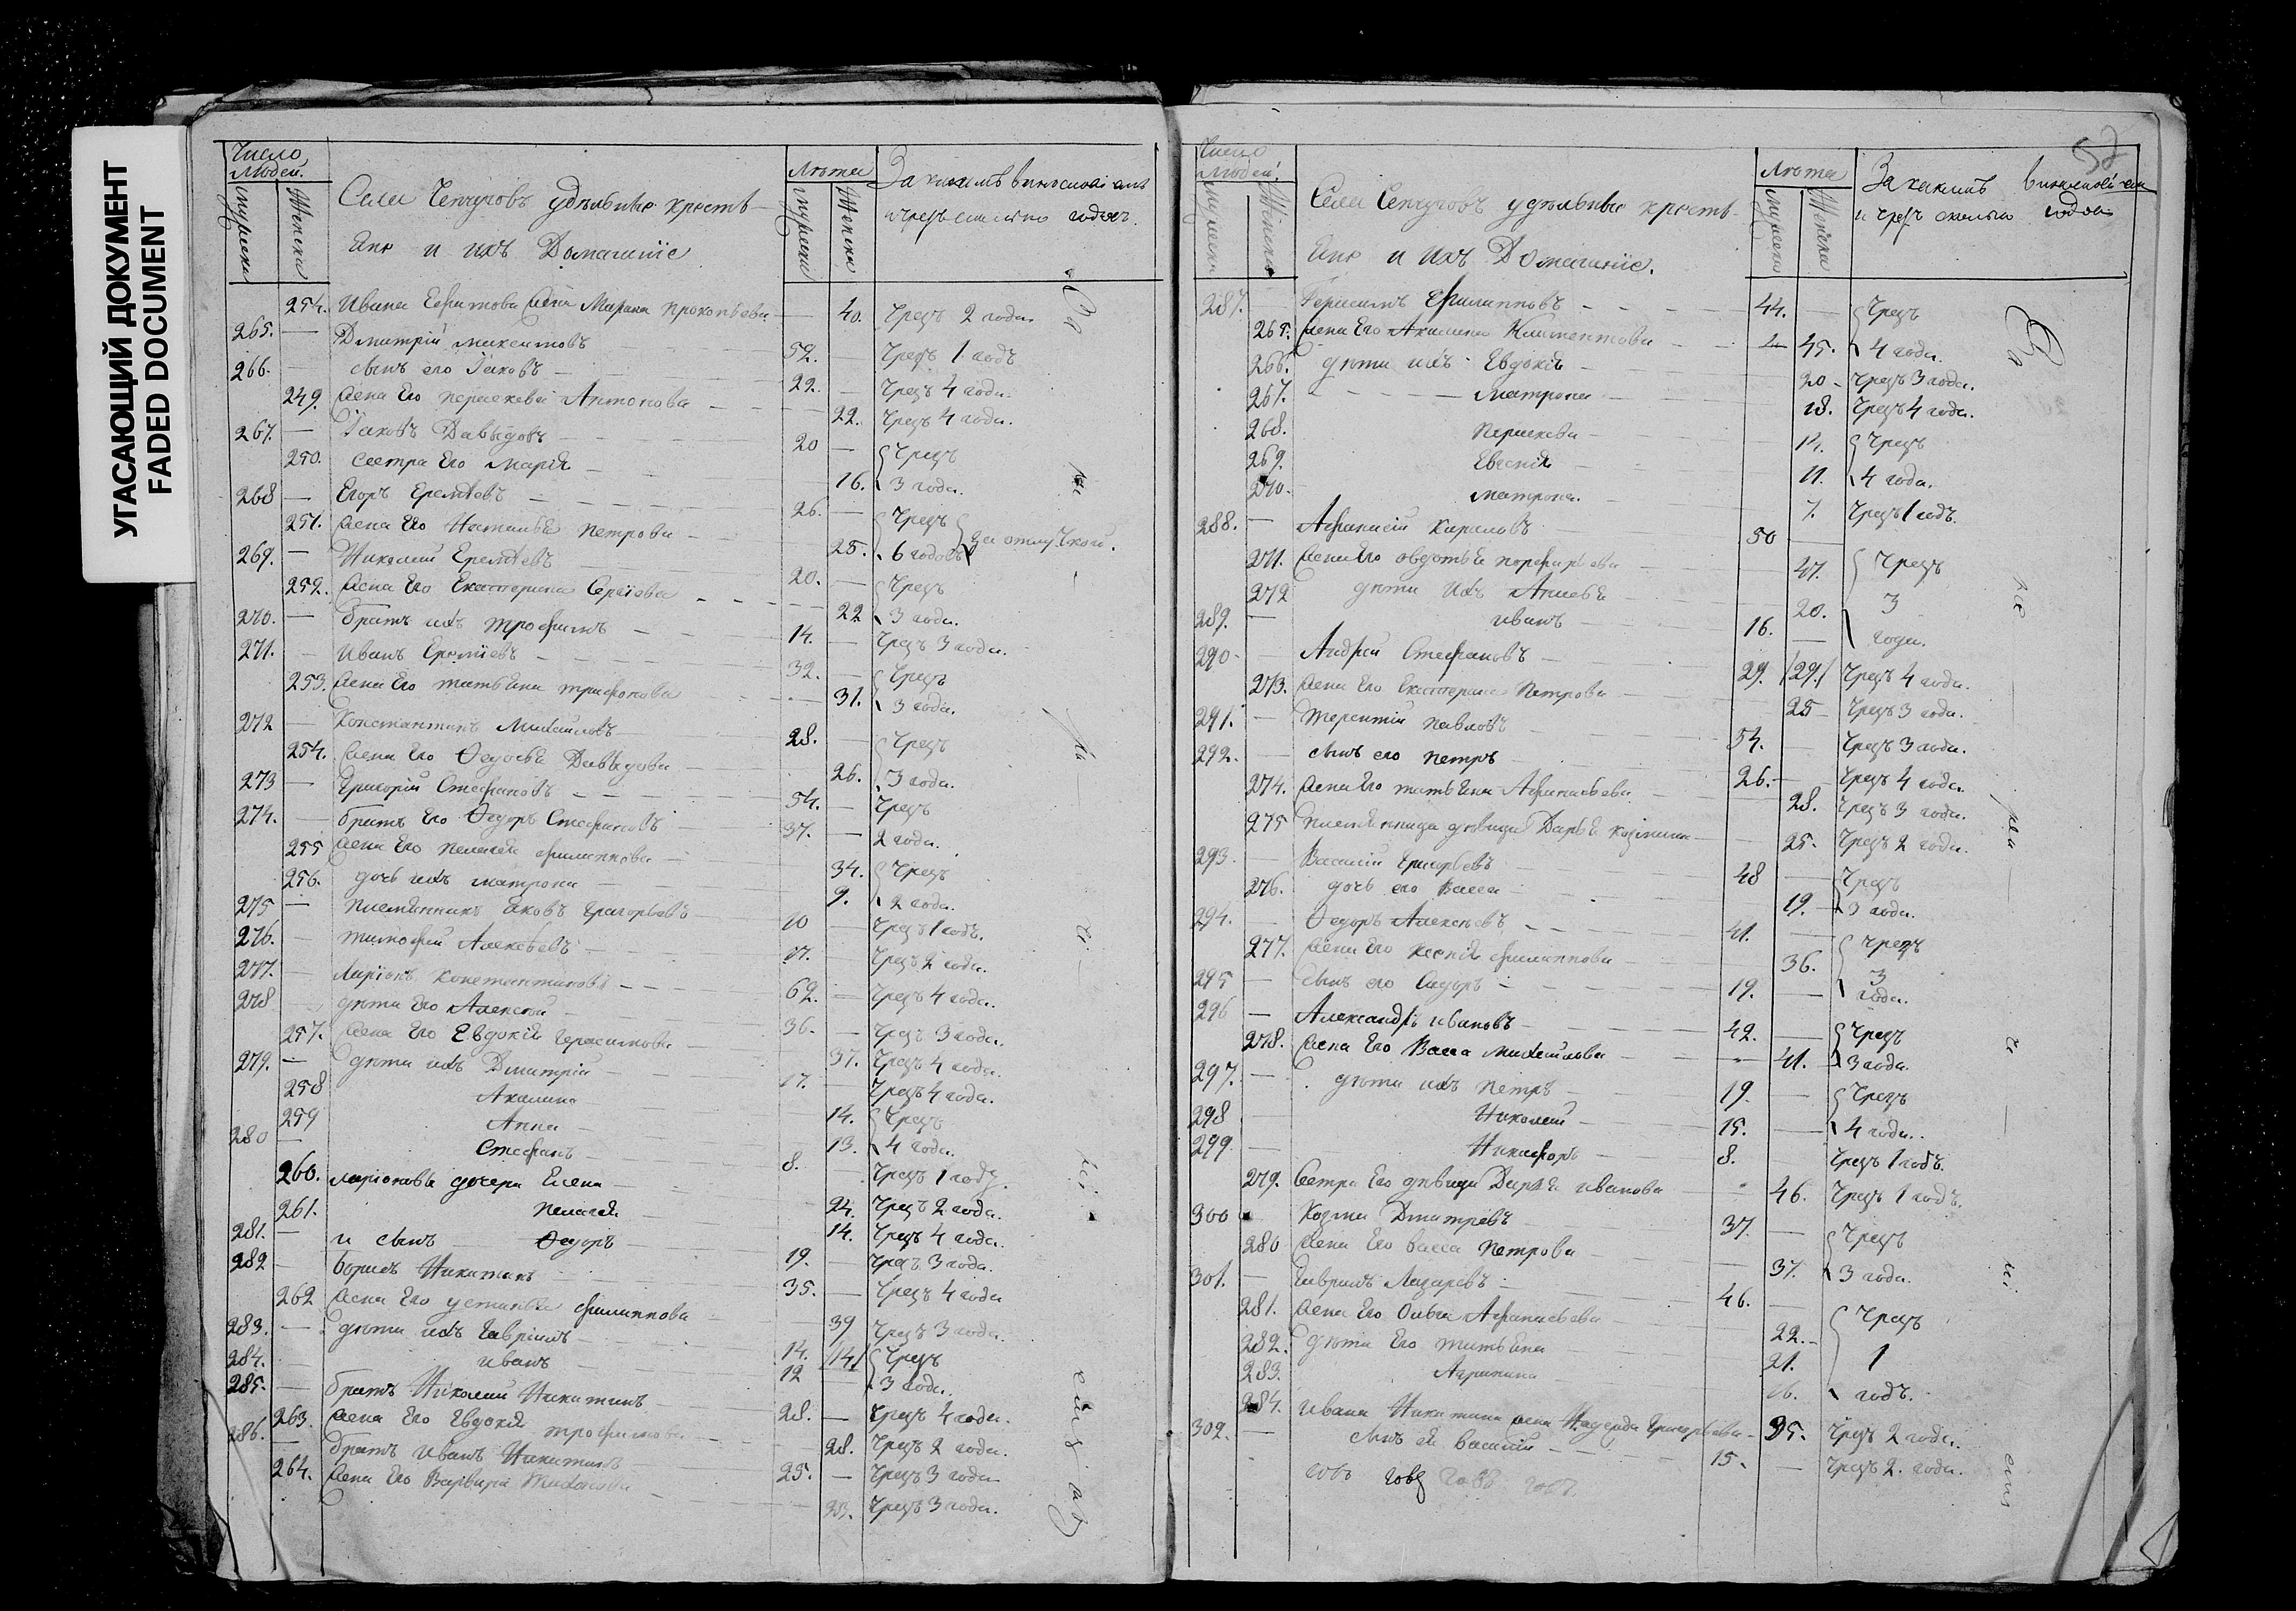 УГАСАЮЩИЙ ДОКУМЕНТ
FADED DOCUMENT
Число людей.
Мужеска Женска
Села удѣльные крестьяне и ихъ Домашніе
Лѣта
Мужеска Женска
За какимъ
и чрезъ сколько годовъ.
254. Ивана Ефимова жена Марина Прокопьева 40. Чрезъ 2 года.
265. Дмитрій Максимовъ 52. Чрезъ 1 годъ
266. сынъ его Іаковъ 22. Чрезъ 4 года.
249. жена Его Параскева Антонова 22. Чрезъ 4 года.
267. Іаковъ Давыдовъ 20 Чрезъ
250. сестра Его Марія 16. 3 года.
268 Егоръ Еремѣевъ 26. Чрезъ
251. жена Его Наталья Петрова 25. 6 годовъ за отлучкой.
269. Николай Еремѣевъ 20. Чрезъ
252. жена Его Екатерина Сергіева 22 3 года.
270. братъ ихъ Трофимъ 14. Чрезъ 3 года.
271. Иванъ 32. Чрезъ
253. жена Его Татьяна Трифонова 31. 3 года.
272 Константинъ Михайловъ 28. Чрезъ
254. жена Его Ѳедосья Давыдова 26. 3 года.
273 Григорій Стефановъ 54. Чрезъ
274. братъ Его Ѳедоръ Стефановъ 37. 2 года.
255 жена Его Пелагея Филиппова 34. Чрезъ
256. дочь ихъ Матрона 9. 2 года.
275 племянникъ Яковъ Григорьевъ 10 Чрезъ 1 годъ.
276. Тимофей Алексѣевъ 17. Чрезъ 2 года.
277. Ларіонъ Константиновъ 62. Чрезъ 4 года.
278 дѣти Его Алексѣй 36. Чрезъ 3 года.
257. жена Его Евдокія Герасимова 37. Чрезъ 4 года.
279. дѣти ихъ Дмитрій 17. Чрезъ 4 года.
258 Акилина 14. Чрезъ
259 Анна 13. 4 года.
280 Стефанъ 8. Чрезъ 1 годъ.
260. Ларіоновы дочери Елена 24. Чрезъ 2 года.
261. Пелагея 14. Чрезъ 4 года.
281. и сынъ Ѳедоръ 19. Чрезъ 3 года.
282 Борисъ Никитинъ 35. Чрезъ 4 года
262 жена Его Устинья Филиппова 39 Чрезъ 3 года.
283. дѣти ихъ Гаврiилъ 14. /14/ Чрезъ
284. Иванъ 12 3 года.
285. братъ Николай Никитинъ 28. Чрезъ 4 года.
263. жена Его Евдокія Трофимова 28. Чрезъ 2 года.
286. братъ Иванъ Никитинъ 25. Чрезъ 3 года
264. жена Его Варвара 23. Чрезъ 3 года.
52
Число людей.
Мужеска Женска
Села удѣльные крестьяне и ихъ Домашніе.
Лѣта
Мужеска Женска
За какимъ
и чрезъ сколько годовъ
287. Герасимъ Филипповъ 44. Чрезъ
265. жена Его Акилина Климентова 45. 4 года.
266. дѣти ихъ Евдокія 20 Чрезъ 3 года.
267. Матрона 18. Чрезъ 4 года.
268. Параскева 14. Чрезъ
269. 11. 4 года.
270. Матрона. 7. Чрезъ 1 годъ.
288. Афанасій Кариловъ 50
271. жена Его Овдотья Порфирьева 47. Чрезъ
272 дѣти ихъ 20. 3
289. Иванъ 16. года.
290 Андрей Стефановъ 29. /29/ Чрезъ 4 года.
273. жена Его Екатерина Петрова 25 Чрезъ 3 года.
291. Терентій Павловъ 54. Чрезъ 3 года.
292. сынъ его Петръ 26. Чрезъ 4 года.
274. жена Его Татьяна Афанасьева 28. Чрезъ 3 года.
275 племянница дѣвица Дарья Козьмина 25. Чрезъ 2 года.
293. Василій Григорьевъ 48 Чрезъ
276. дочь его Васса 19. 3 года.
294. Ѳедоръ Алексѣевъ 41. Чрезъ
277. жена Его Ксенія Филиппова 36. 3
295 сынъ его Сидоръ 19. года.
296 Александръ Ивановъ 42. Чрезъ
278. жена Его Васса Михайлова 41. 3 года.
297. дѣти ихъ Петръ 19. Чрезъ
298 Николай 15. 4 года.
299. Никифоръ 8. Чрезъ 1 годъ.
279. Сестра Его дѣвица Дарья Иванова 46. Чрезъ 1 годъ.
300 Козма Дмитревъ 37. Чрезъ
280 жена Его Васса Петрова 37. 3 года.
301. Гаврилъ Лазаревъ 46. Чрезъ
281. жена Его Ольга Афанасьева 22. 1
282. дѣти Его Татьяна 21.
283. Агрипина 16. годъ.
284. Ивана Никитина жена Надежда Григорьева 35. Чрезъ 2 года.
302. сынъ ея Василій 15. Чрезъ 2. года.